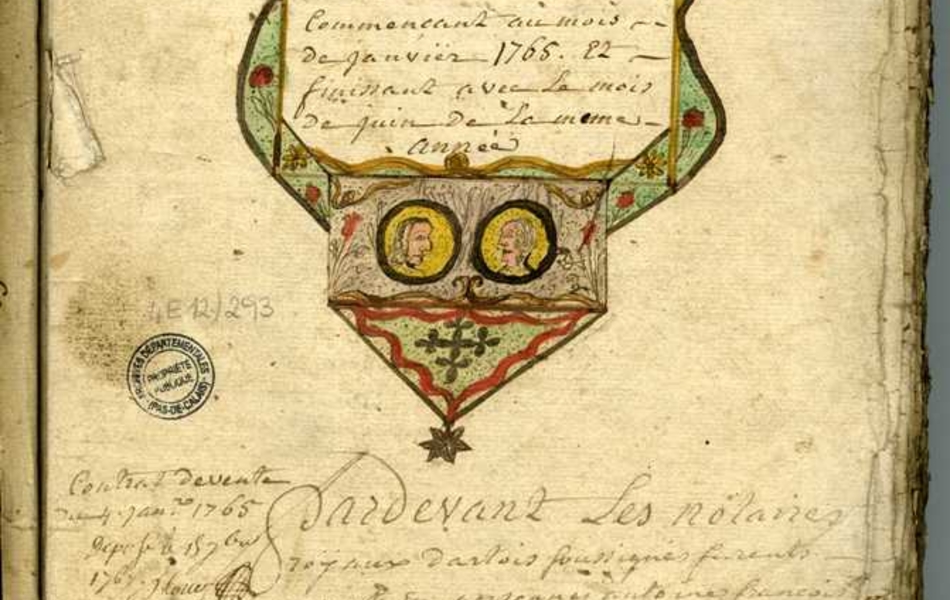 Commencant au mois
de janvier 1765. Et
finissant avec Le mois
de juin de La meme
année
4E 12/293
ARCHIVES DÉPARTEMENTALES
PROPRIÉTÉ
PUBLIQUE
(PAS-DE-CALAIS)
Contrat de vente
du 4 janv.ro 1765
Pardevant Les nôtaires
royaux dartois soussignes furents
antoine francois